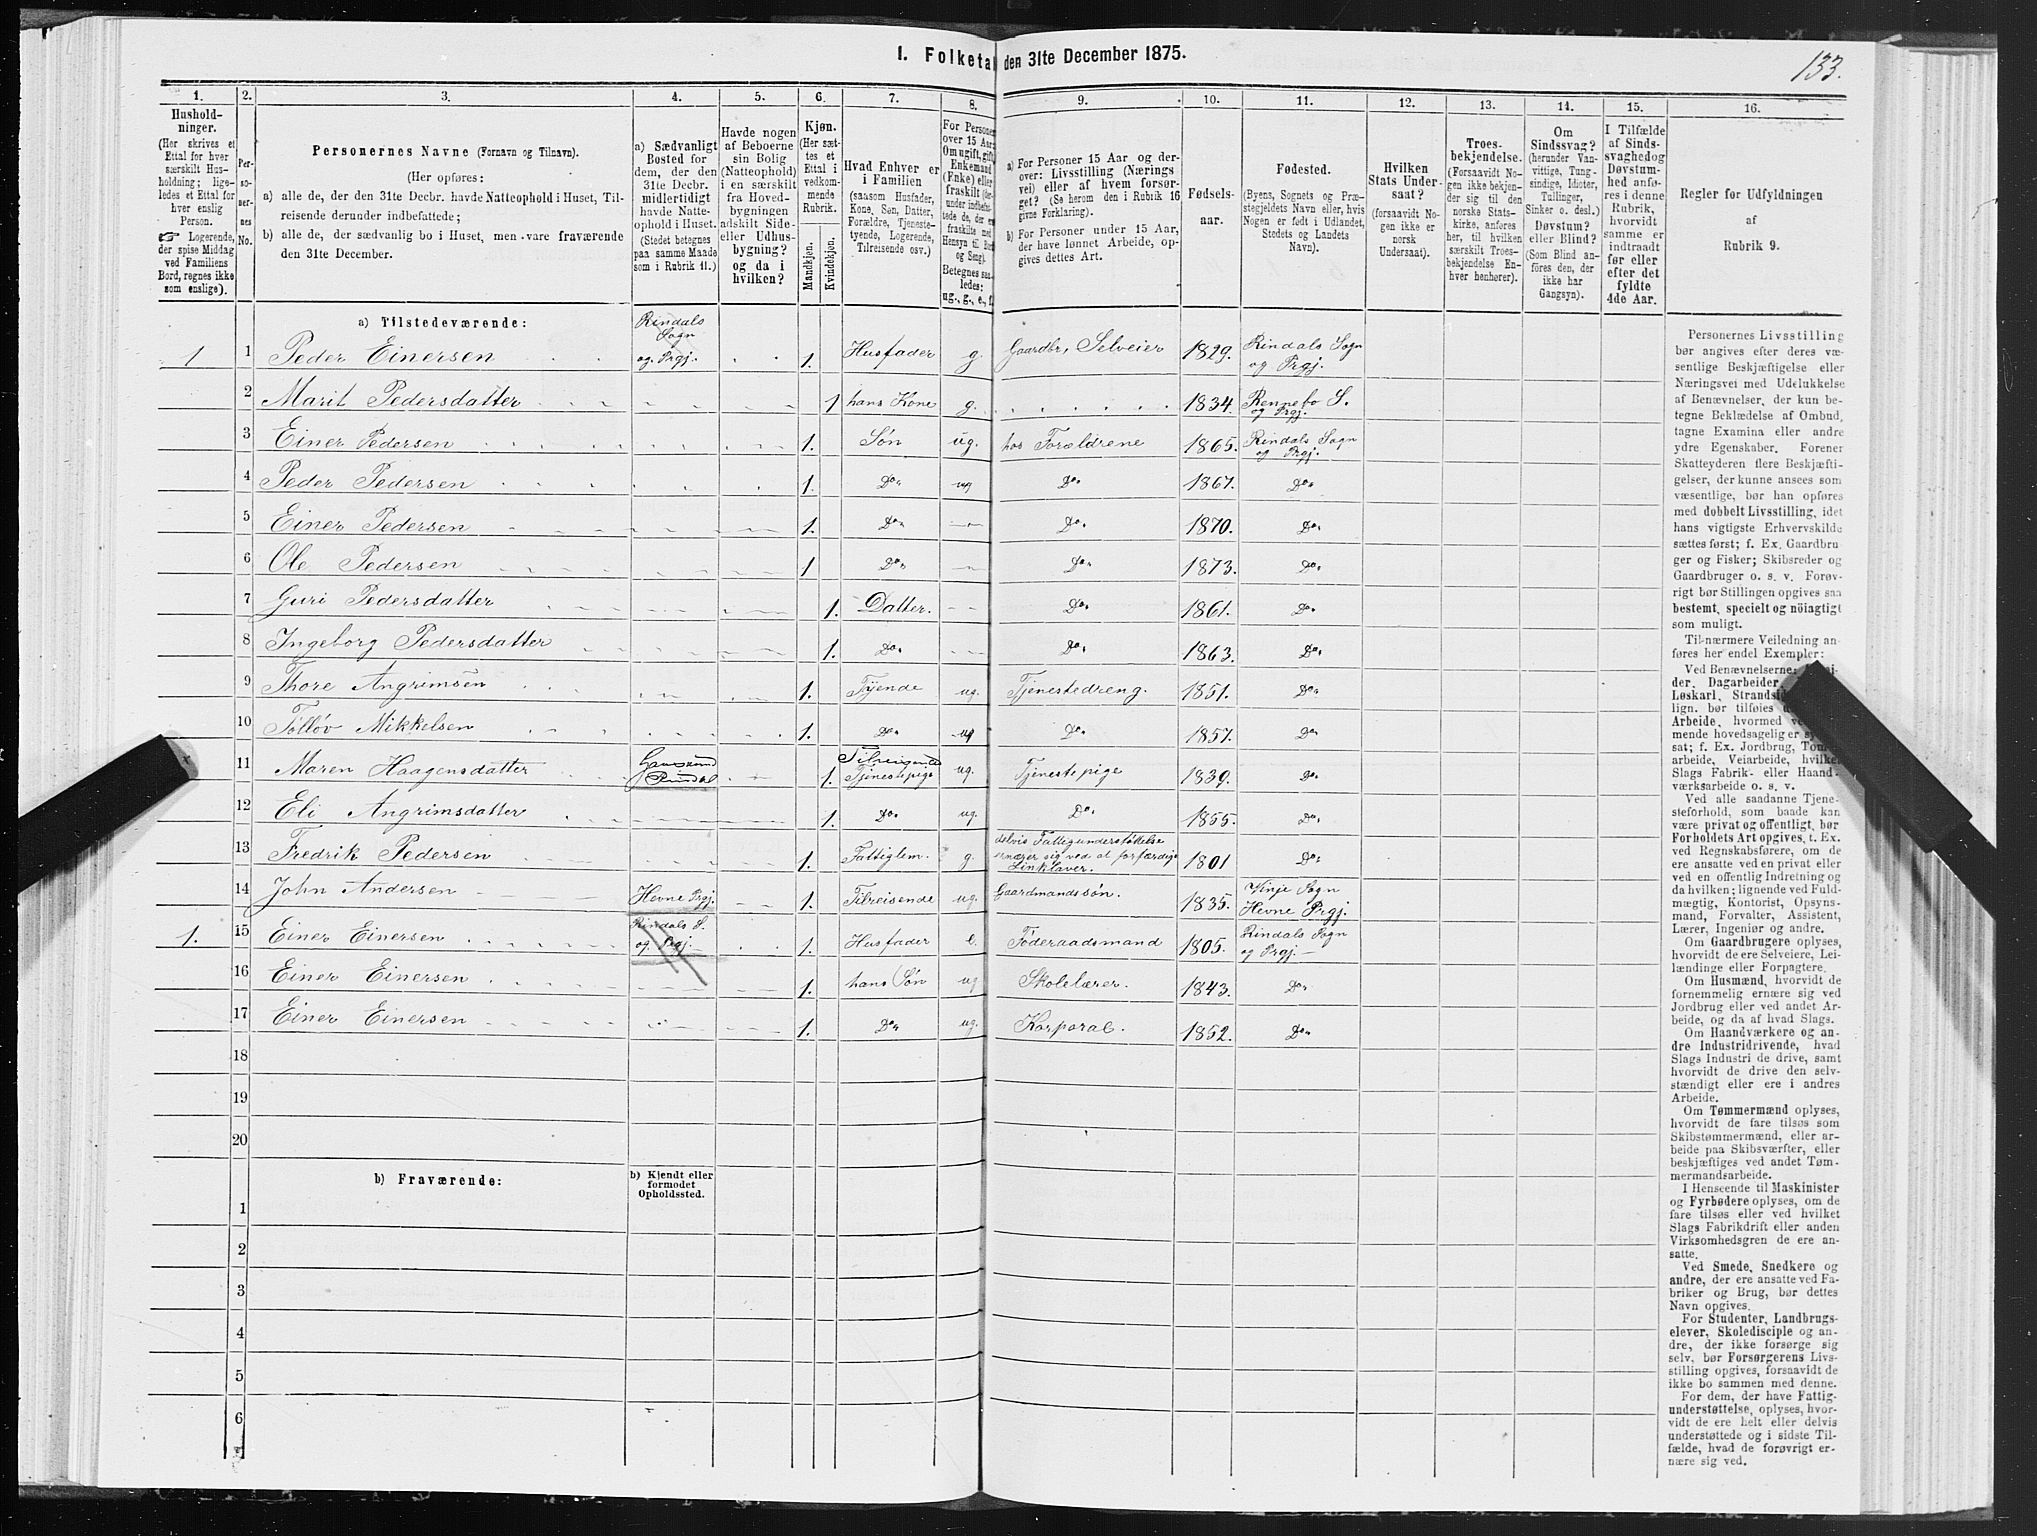 I. Folketal den 31te December 1875.
133.
1.
2.
3.
4.
5.
6.
7.
8.
9.
10.
11.
12.
13.
14.
15.
16.
Hushold-
ninger.
(Her skrives et
Ettal for hver
særskilt Hus-
holdning; lige-
ledes et Ettal for
hver enslig
Person.
☞ Logerende,
der spise Middag
ved Familiens
Bord, regnes ikke
som enslige).
Per-
so-
ner-
nes
No.
Personernes Navne (Fornavn og Tilnavn).
(Her opføres:
a) alle de, der den 31te Decbr. havde Natteophold i Huset, Til-
reisende derunder indbefattede;
b) alle de, der sædvanlig bo i Huset, men vare fraværende
den 31te December.
a) Sædvanligt
Bosted for
dem, der den
31te Decbr.
midlertidigt
havde Natte-
ophold i Huset.
(Stedet betegnes
paa samme Maade
som i Rubrik 11.)
Havde nogen
af Beboerne
sin Bolig
(Natteophold)
i en særskilt
fra Hoved-
bygningen
adskilt Side-
eller Udhus-
bygning?
og da i
hvilken?
Kjøn.
(Her sæt-
tes et
Ettal i
vedkom-
mende
Rubrik.
Mandkjøn.
Kvindekjøn.
Hvad Enhver er
i Familien
(saasom Husfader,
Kone, Søn, Datter,
Forældre, Tjeneste-
tyende, Logerende,
Tilreisende osv.)
For Personer
over 15 Aar:
Om ugift, gift,
Enkemand
(Enke) eller
fraskilt
Betegnes saa-
ledes:
ug., g., e., f.
a) For Personer 15 Aar og der-
over: Livsstilling (Nærings
vei) eller af hvem forsør-
get? (Se herom den i Rubrik 16
givne Forklaring).
b) For Personer under 15 Aar,
der have lønnet Arbeide, op-
gives dettes Art.
Fødsels-
aar.
Fødested.
(Byens, Sognets og Præ-
stegjeldets Navn eller, hvis
Nogen er født i Udlandet,
Stedets og Landets
Navn).
Hvilken
Stats Under-
saat?
(forsaavidt No-
gen ikke er
norsk
Undersaat).
Troes-
bekjendelse.
(Forsaavidt No-
gen ikke bekjen-
der sig til den
norske Stats-
kirke, anføres
her, til hvilken
særskilt Troes-
bekjendelse En-
hver henhører).
Om
Sindssvag?
(herunder Van-
vittige, Tung-
sindige, Idioter,
Tullinger,
Sinker o. desl.)
Døvstum?
eller Blind?
(Som Blind an-
føres den, der
ikke har
Gangsyn).
I Tilfælde
af Sinds-
svaghed og
Døvstum-
hed anfø-
res i denne
Rubrik,
hvorvidt
samme er
indtraadt
før eller
efter det
fyldte
4de Aar.
Regler for Udfyldningen
af
Rubrik 9.
a) Tilstedeværende:
1 1 Peder Einersen Rindals Sogn og Prgj. 1. Husfader g. Gaardbr, Selveier 1829. Rindals Sogn og Prgj.
2 Marit Pedersdatter 1 hans Kone g. 1834. Rennebo S. og Prgj.
3 Einer Pedersen 1. Søn ug. hos Forældrene 1865. Rindals Sogn og Prgj.
4 Peder Pedersen 1. Do. ug Do. 1867. Do.
5 Einer Pedersen 1. Do. Do. 1870. Do.
6 Ole Pedersen 1 Do. Do. 1873. Do.
7 Guri Pedersdatter 1. Datter. Do. 1861. Do.
8 Ingeborg Pedersdatter 1. Do. Do. 1863. Do.
9 Thore Angrimsen 1. Tyende ug. Tjenestedreng. 1851. Do.
10 Tølløv Mikkelsen 1. Do. ug Do. 1857. Do.
11 Maren Haagensdatter Rindal 1. Tjenestepige ug. Tjenestepige 1839. Do.
12 Eli Angrimsdatter 1. Do. ug. Do. 1855. Do.
13 Fredrik Pedersen 1. Fattiglem. g. delvis Fattigunderstøttelse ernærer sig ved at forfærdige 1801 Do.
14 John Andersen Hevne Prgj. 1. Tilreisende ug. Gaardmandssøn. 1835. Vinje Sogn Hevne Prgj.
1. 15 Einer Einersen Rindals S. og Prgj. 1. Husfader e. Føderaadsmand 1805. Rindals Sogn og Prgj.
16 Einer Einersen 1. hans Søn ug Skolelærer. 1843. Do.
17 Einer Einersen 1. Do. ug. Korporal. 1852. Do.
18
19
20
b) Fraværende:
b) Kjendt eller
formodet
Opholdssted.
1
2
3
4
5
6
Personernes Livsstilling
bør angives efter deres væ-
sentlige Beskjæftigelse eller
Næringsvei med Udelukkelse
af Benævnelser, der kun be-
tegne Beklædelse af Ombud,
tagne Examina eller andre
ydre Egenskaber. Forener
Skatteyderen flere Beskjæfti-
gelser, der kunne ansees som
væsentlige, bør han opføres
med dobbelt Livsstilling, idet
hans vigtigste Erhvervskilde
sættes først; f. Ex. Gaardbru-
ger og Fisker; Skibsreder og
Gaardbruger o. s. v. Forøv-
rigt bør Stillingen opgives saa
bestemt, specielt og nöiagtigt
som muligt.
Til nærmere Veiledning an-
føres her endel Exempler:
Ved Benævnelserne:
der, Dagarbeider,
Løskarl, Strandsid
lign. bør tilføies
Arbeide, hvormed
mende hovedsagelig er
sat; f. Ex. Jordbrug, Tom
arbeide, Veiarbeide, hvilket
Slags Fabrik- eller Haand-
værksarbeide o. s. v.
Ved alle saadanne Tjene-
steforhold, som baade kan
være privat og offentligt, bør
Forholdets Art opgives, t. Ex.
ved Regnskabsførere, om de
ere ansatte ved en privat eller
ved en offentlig Indretning og
da hvilken; lignende ved Fuld-
mægtig, Kontorist, Opsyns-
mand, Forvalter, Assistent,
Lærer, Ingeniør og andre.
Om Gaardbrugere oplyses,
hvorvidt de ere Selveiere, Lei-
lændinge eller Forpagtere.
Om Husmænd, hvorvidt de
fornemmelig ernære sig ved
Jordbrug eller ved andet Ar-
beide, og da af hvad Slags.
Om Haandværkere og an-
dre Industridrivende, hvad
Slags Industri de drive, samt
hvorvidt de drive den selv-
stændigt eller ere i andres
Arbeide.
Om Tømmermænd oplyses,
hvorvidt de fare tilsøs som
Skibstømmermænd, eller ar-
beide paa Skibsværfter, eller
beskjæftiges ved andet Tøm-
mermandsarbeide.
I Henseende til Maskinister
og Fyrbødere oplyses, om de
fare tilsøs eller ved hvilket
Slags Fabrikdrift eller anden
Virksomhedsgren de ere an-
satte.
Ved Smede, Snedkere og
andre, der ere ansatte ved Fa-
briker og Brug, bør dettes
Navn opgives.
For Studenter, Landbrugs-
elever, Skoledisciple og an-
dre, der ikke forsørge sig
selv, bør Forsørgerens Livs-
stilling opgives, forsaavidt de
ikke bo sammen med denne.
For dem, der have Fattig-
understøttelse, oplyses, hvor-
vidt de ere helt eller delvis
understøttede og i sidste Til-
fælde, hvad de forøvrigt er-
nære sig ved.